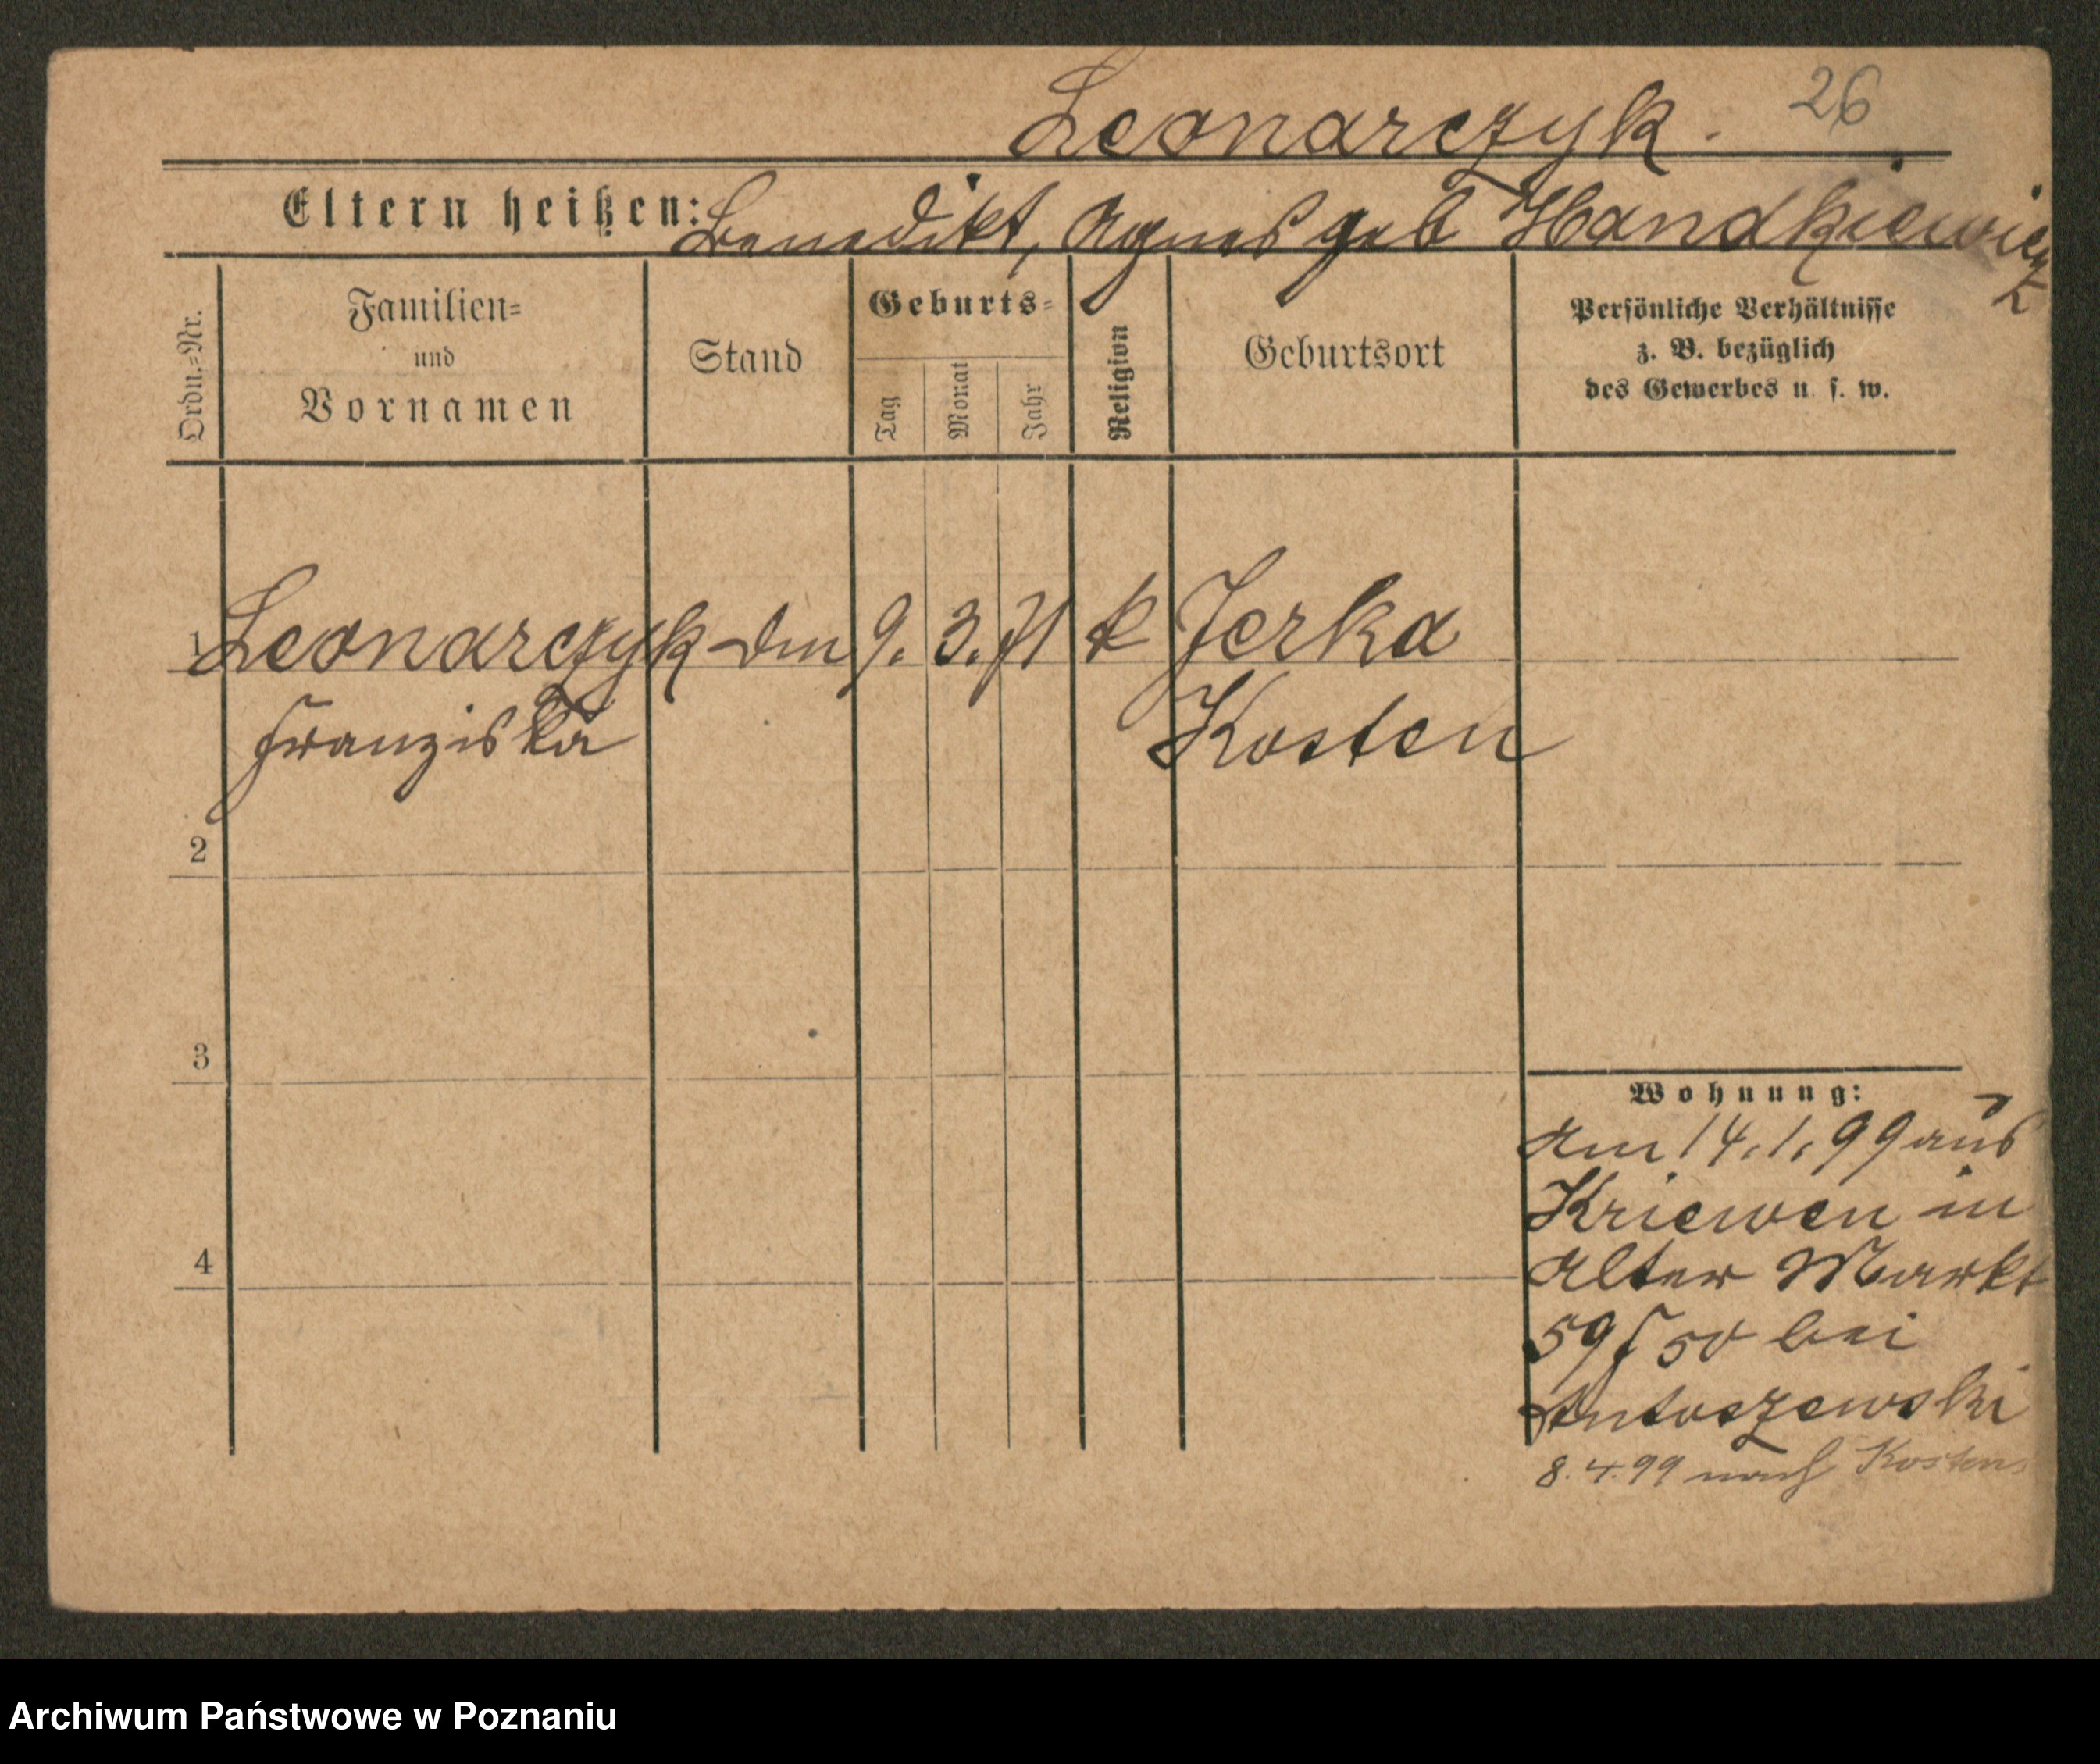 Leonarczyk. 26
Eltern heißen: Benedikt, Agnes geb Handkiewicz
Ordn.=Nr.
Familien=
und
Vornamen
Stand
Geburts=
Tag
Monat
Jahr
Religion
Geburtsort
Persönliche Verhältnisse
z. B. bezüglich
des Gewerbes u. s. w.
1 Leonarczyk 9. 3. 71 k Jerka
Franziska Kosten
2
3
4
Wohnung:
Am 14. 1. 99 aus
Kriewen in
Alter Markt
bei
Antoszewski
8. 4. 99 nach Kosten
Archiwum Państwowe w Poznaniu